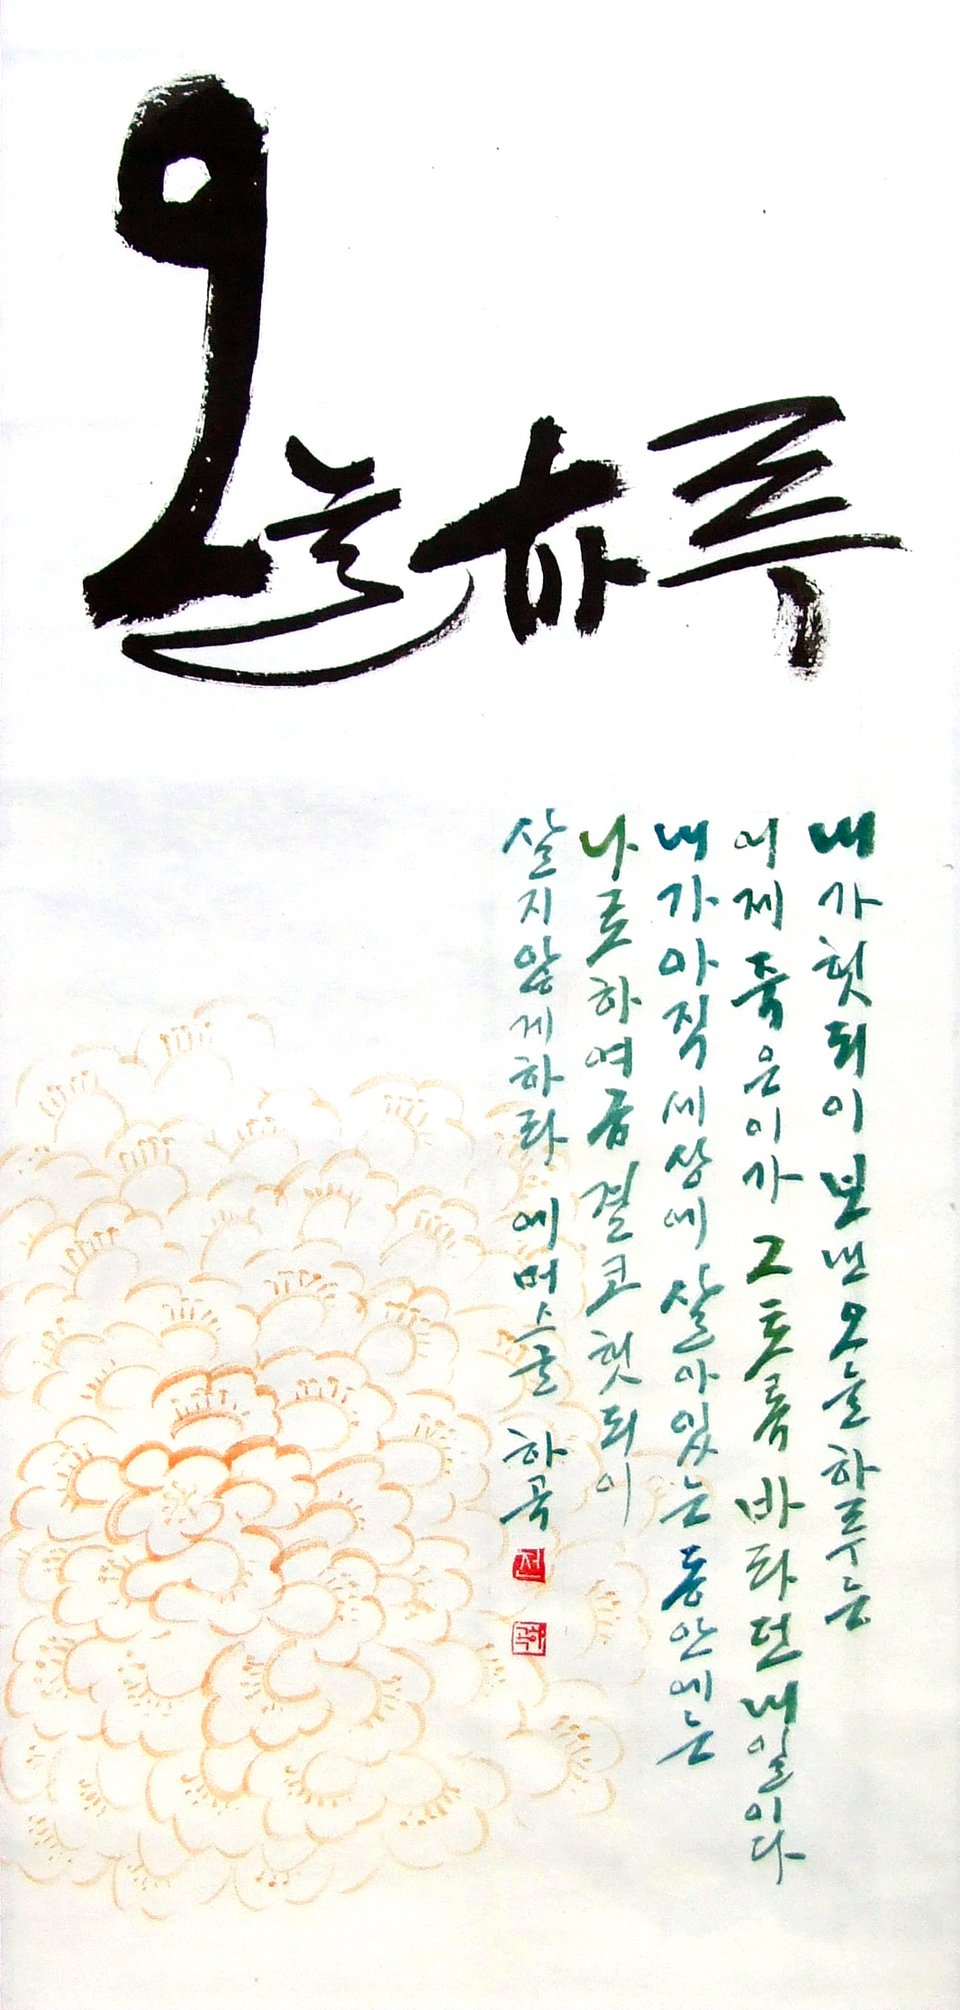 오늘하루
내가헛되이보낸오늘하루는
어제죽은이가그토록바라던내일이다
내가아직세상에살아있는동안에는
나로하여금결코헛되이
살지않게하라 에머슨글 하곡
전
하곡